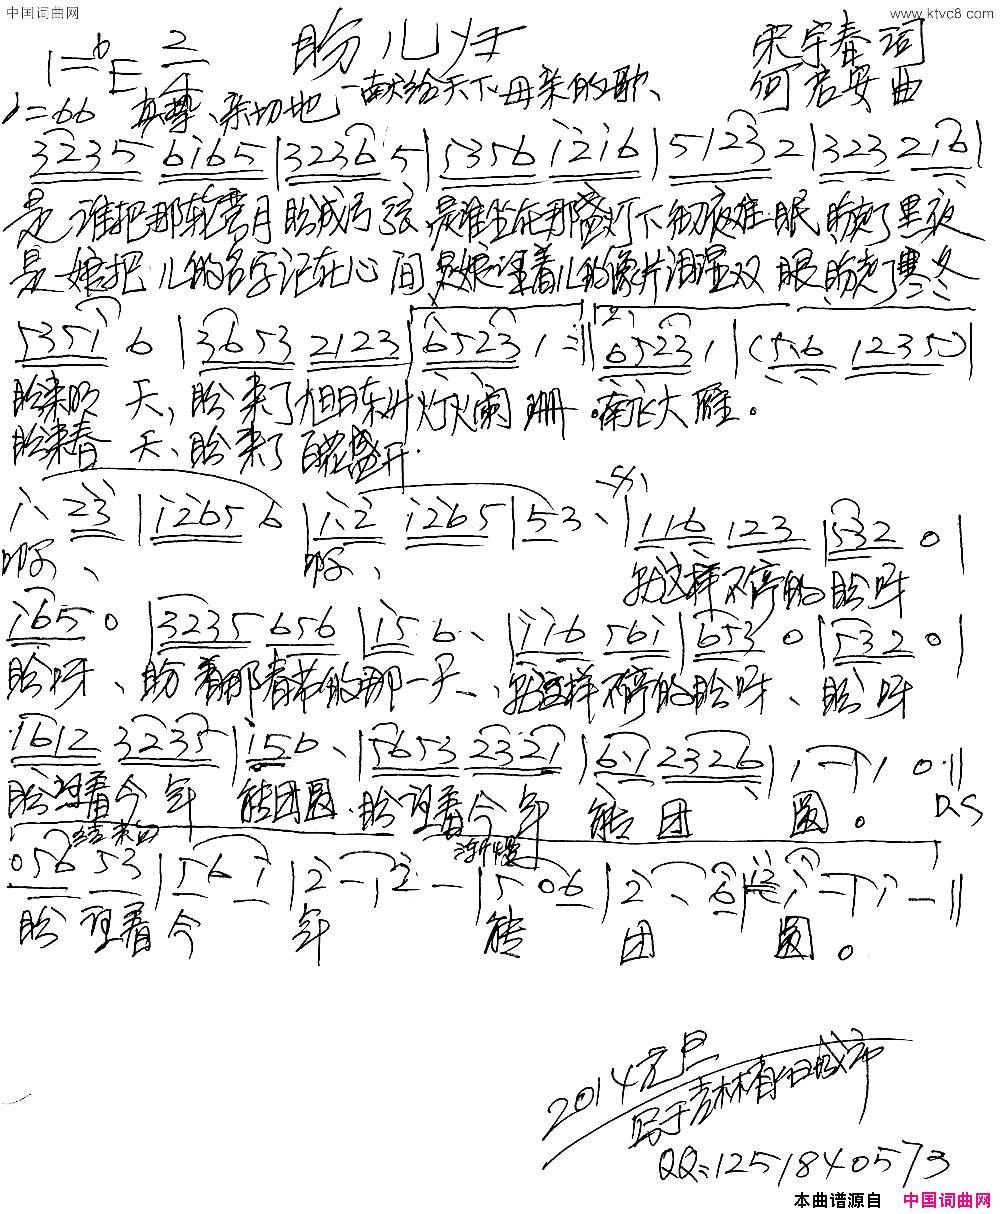 中国词曲网 www.ktvc8.com
盼儿归
宋宇春 词
1=bE 2/4
—献给天下母亲的歌
何君安 曲
♩=66 真挚、亲切地
3235 6165 | 3236 5 | 5356 1216 | 5123 2 | 323 216 |
是谁把那轮弯月盼成弓弦,是谁坐在那盏灯下彻夜难眠 盼走了黑夜
是娘把儿的名字记在心间 是娘望着儿的像片泪湿双眼 盼走了寒冬
5351 6 | 3653 2123 | 6523 1 :|| 6523 1 | (5.6 1235) |
盼来明天,盼来了旭日东升 灯火阑珊。南飞大雁。
盼来春天、盼来了百花盛开.
1. 23 | 1265 6 | 1.2 1265 | 53. | 116 123 | 532 0 |
啊、 啊、 就这样不停的盼呀
165 0 | 3235 656 | 15 6. | 116 561 | 653 0 | 532 0 |
盼呀、盼着那春节的那一天、就这样不停的盼呀、盼呀
1612 3235 | 156. | 5653 2321 | 6.1 2326 | 1 - | 1 0 ||
盼望着今年能团圆.盼望着今年能团圆。 D.S
结束句 渐慢
056 53 | 56 1 | 2 - | 2 - | 5 06 | 2. 6 | 1 - | 1 - ||
盼望着今年能团圆。
2014元旦
写于吉林春城
QQ:1251840573
本曲谱源自 中国词曲网